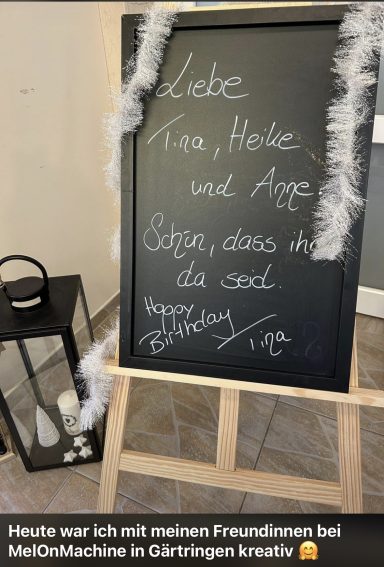 Liebe
Tina, Heike
und Anne.
Schön, dass ihr
da seid.
Happy
Birthday
Tina
Heute war ich mit meinen Freundinnen bei
MelOnMachine in Gärtringen kreativ 🤗